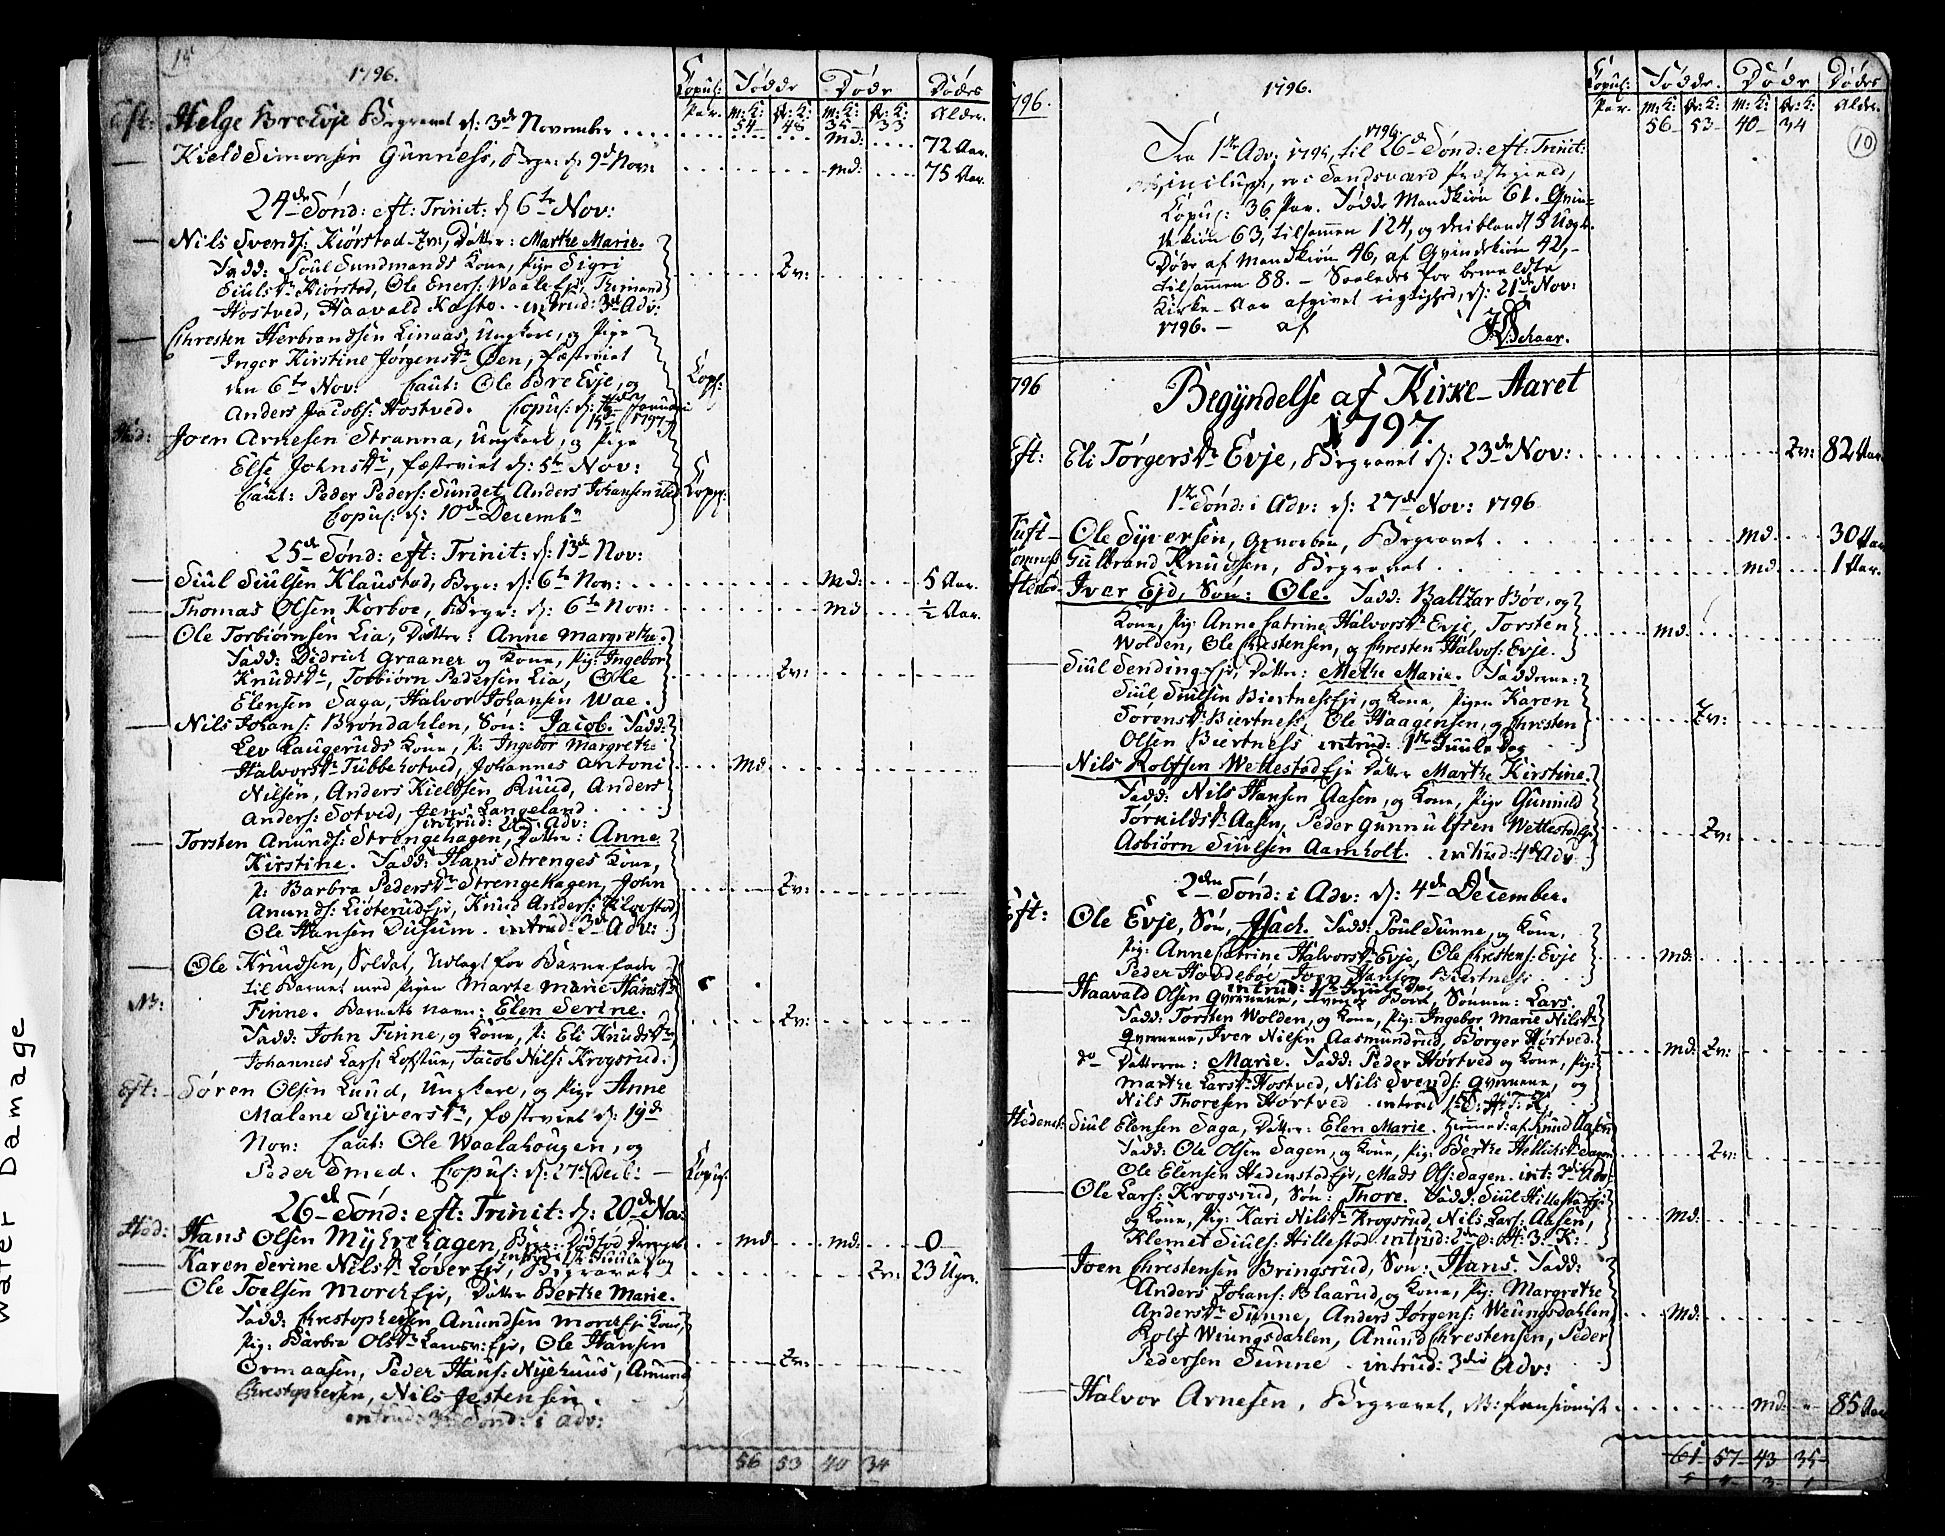 Water Damage
1796.
Copul: Fødde Døde Dødes
Par. M:K: Qv:K: M:K: Qv:K: Alder.
54 48 35 33
Eft: Helge Bre Evje Begravet d: 3de November md: 72 Aar.
Kield Simonsen Gunness, Begr: d: 9de Nov: md: 75 Aar.
24de Sønd: eft: Trinit: d: 6te Nov:
Nils Svends: Kiørstad Eje, Datter: Marthe Marie.
Fadd: Poul Sundmands Kone, Pige Sigri
Siulsdr Kiørstad, Ole Eners: Waale Eje, Trimand Qv:
Hostved, Haavald Kasto. introd: 3de Adv:
Christen Herbrandsen Limaas, Ungkarl, og Pige
Inger Kirstine Jørgensdr Øen, fæsteviet
den 6te Nov: Caut: Ole Bre Evje, og Cops:
Anders Jacobs: Hostved. Copul: d: Januari 1797
Hed: Joen Arnesen Stranna, Ungkarl, og Pige
Else Johnsdr, fæsteviet d: 5te Nov:
Caut: Peder Peders: Sundet, Anders Johansen Copul:
Copul: d: 10de Decembr
25de Sønd: eft: Trinit: d: 13de Nov:
Siul Siulsen Klaustad, Begr: d: 6te Nov: md: 5 Aar.
Thomas Olsen Korboe, Begr: d: 6te Nov: md ½ Aar.
Ole Torbiørnsen Lia, Datter: Anne Margrethe.
Fadd: Didrich Graaner og Kone, Pig: Ingebor
Knudsdr, Torbiørn Pedersen Lia, Ole Qv:
Elensen Saga, Halvor Johansen Wae.
Nils Johans: Brøndahlen, Søn: Jacob. Fadd:
Lev Laugeruds Kone, P: Ingebor Margrethe
Halvorsdr Tubbehotved, Johannes Antoni md
Nilsen, Anders Kieldsen Ruud, Anders
Anders: Sotved, Jens Langeland.
introd: Adv:
Torsten Anunds: Strengehagen, Datter: Anne
Kirstine. Fadd: Hans Strenges Kone,
P: Barbra Pedersdr Strengehagen, John Qv:
Anunds: Lioterud Eje, Knud Anders:
Ole Hansen Dusum. introd: 3de Adv:
Ole Knudsen, Soldat, Udlagt for Barnefader
til Barnet med Pigen Marte Marie Hansdr
NB: Finne. Barnets navn: Elen Serine. Qv:
Fadd: John Finne, og Kone, P: Eli Knudsdr
Johannes Lars: Lofstue, Jacob Nils: Krogsrud.
Eft: Søren Olsen Lund, Ungkarl, og Pige Anne
Malene Syversdr, fæsteviet d: 19de
Nov: Caut: Ole Waalahougen, og
Peder Smed. Copul: d: 27de Decb: Copul:
26de Sønd: eft: Trinit: d: 20de Nov:
Hed: Hans Olsen Myhrehagen, Begr: Dødfød md md: 0
Karen Serine Nilsdr Lover Eje, Begravet Qv: 23 Uger.
introd: 1ste Juuledag
Ole Toelsen Morch Eje, Datter Berthe Marie.
Fadd: Chrestophersen Anundsen Morch Eje Kone,
Pig: Barbra Olsdr Eje, Ole Hansen
Ormaasen, Peder Hans: Nyehuus, Amund Qv:
Chrestophersen, Nils Jestensen.
introd: 3de Sønd: i Adv:
56 53 40 34
10
1796.
796.
Copul: Fødde Døde Dødes
Par. M:K: Qv:K: M:K: Qv:K: Alder.
56 53 40 34
1796
Fra 1ste Adv: 1795, til 26de Sønd: eft: Trinit:
inclus:, er i Sandsværd Præstegield,
Copul: 36 Par. Fødde Mandkiøn 61. Qvin-
dekiøn 63, tilsammen 124, og deriblandt 5 Uægt.
Døde af Mandkiøn 46, af Qvindekiøn 42,
tilsammen 88. Saaledes for bemeldte
Kirke-Aar afgivet rigtighed, d: 21de Nov:
1796. af
Schaar.
796 Begyndelse af Kirke-Aaret
1797.
Eft: Eli Torgersdr Evje, Begravet d: 23de Nov: Qv: 82 Aar
1ste Sønd: i Adv: d: 27de Nov: 1796
Tuft Ole Syversen, Begravet md. 30 Aar
Gulbrand Knudsen, Begravet md. 1 Aar.
Iver Ejd, Søn: Ole. Fadd: Baltzar Bøe, og
Kone, Pig: Anne Catrine Halvorsdr Evje, Torsten md.
Wolden, Ole Chrestensen, og Chresten Halvos: Evje.
Siul Sending Eje, Datter: Mette Marie. Fadderne:
Siul Siulsen Biertness Eje og Kone, Pigen Karen
Sørensdr Biertness, Ole Haagensen, og Chresten Qv:
Olsen Biertness introd: 1ste Juule Dag
Nils Rolfsen Wettestad Eje Datter Marthe Kirstine.
Fadd: Nils Hansen Aasen, og Kone, Pige Gunnild
Torkildsdr Aasen, Peder Gunnulfsen Wettestad Eje Qv:
Asbiørn Siulsen Aamholt. introd: 4de Adv:
2den Sønd: i Adv: d: 4de December.
Eft: Ole Evje, Søn, Isach. Fadd: Poul Sunne, og Kone,
Pig: Anne Catrine Halvorsdr Evje, Ole Chrestens: Evje md:
Peder Haddeboe, Iver Hansen Biertness
introd: 1ste Juule Dag
Haavald Olsen Qvernene, Bore, Sønnen: Lars.
Fadd: Torsten Wolden, og Kone, Pig: Ingebor Marie Nilsdr
Qvernene, Iver Nielsen Aasmundrud, Borger Hortved. md. Qv:
do Datteren: Marie. Fadd: Peder Hortved og Kone, Pig:
Marthe Larsdr Hostved, Nils Svends: Qvernene, og
Nils Thoresen Hortved introd:
Hedenst: Siul Elensen Saga, Datter: Elen Marie. Hiemmed: af Knud Aasen
Fadd: Ole Olsen Sagen, og Kone, Pig: Berthe Sagen Qv:
Ole Elensen Hedenstad Eje, Mads Ols: Sagen. int: 3de Adv:
Ole Lars: Krogsrud, Søn: Thore. Fadd: Siul Hillestad Eje
og Kone, Pig: Kari Nilsdr Krogsrud, Nils Lars: Aasen, md:
Klemet Siuls: Hillestad. introd:
Joen Chrestensen Bringsrud, Søn: Hans. Fadd:
Anders Johans: Blaarud, og Kone, Pig: Margrethe
Andersdr Sunne, Anders Jørgens: Weungsdahlen, md:
Rolf Wiungsdahlen, Anund Chrestensen, Peder
Pedersen Sunne. introd: 3die Adv:
Halvor Arnesen, Begravet, NB: Pensionist md: 85 Aar
61 57 43 35
5 4 3 1